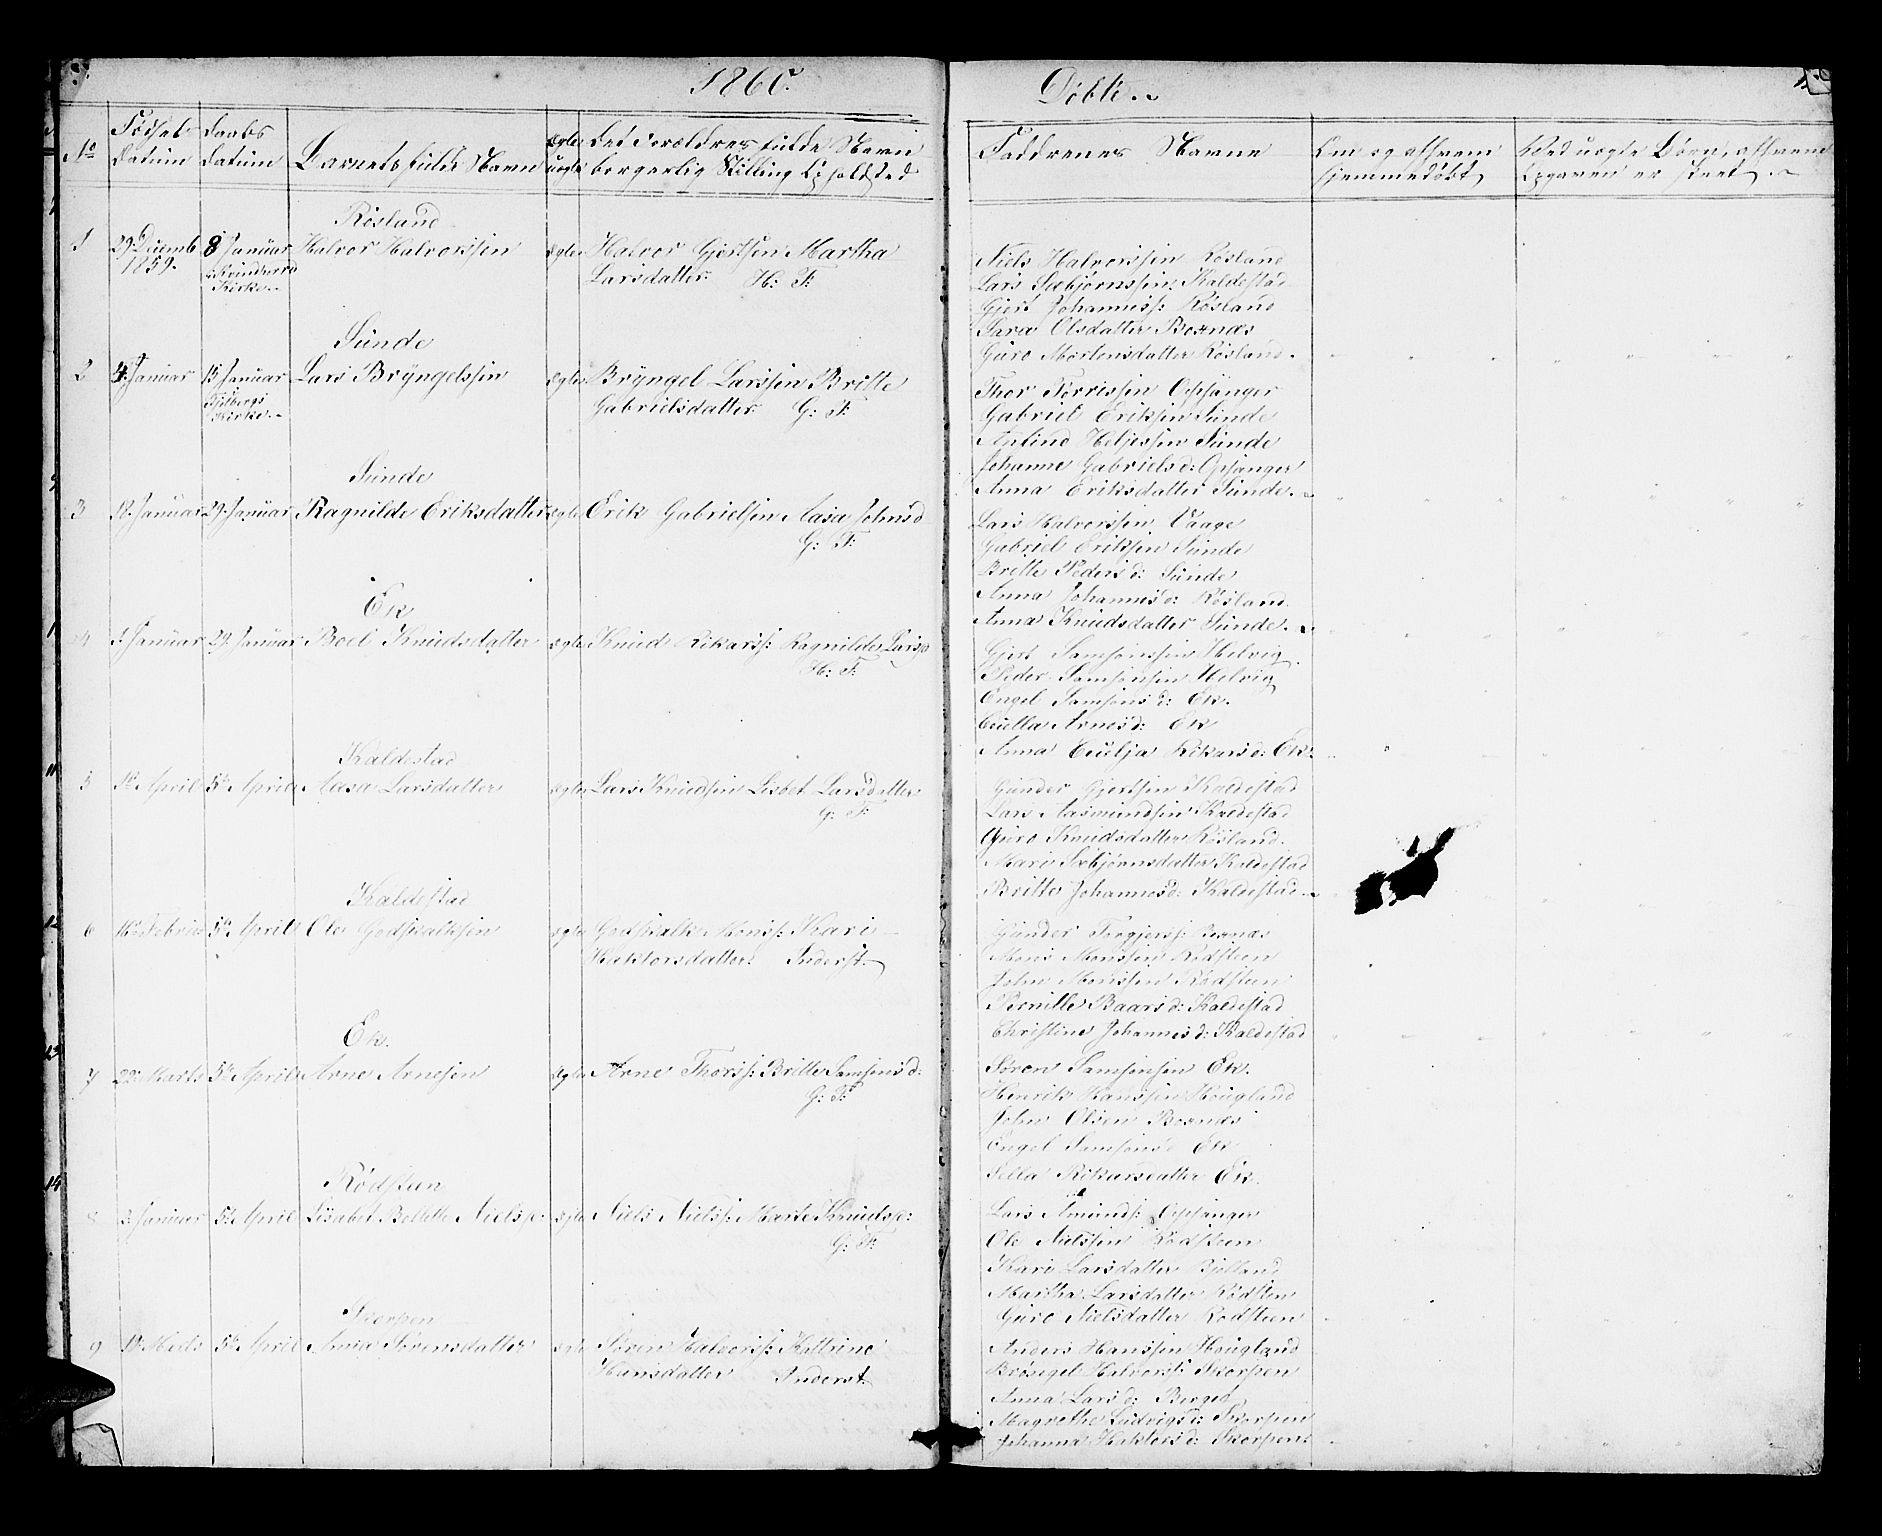 1860.
Døbte.
No
Fødsels Datum
Daabs Datum
Barnets fulde Navn
Ægte uægte
Det Foreldres fulde Navn borgerlig Stilling Opholdsted
Faddrenes Navne
Om og af hvem hjemmedøbt
Ved uægte Børn, af hvem Opgaven er skeet
Røsland
1 29 Decemb 1859. 8 Januar Kirke Halvor Halvorssøn ægte Halvor Gjertsen Martha
Larsdatter. H: F:
Niels Halvorssøn Røsland
Lars Sæbjørnssøn Kaldestad
Gjert Johanness: Røsland
Sara Olsdatter Boxnæs
Guro Mortensdatter Røsland
Sunde
2 4 Januar 15 Januar Kirke Lars Bryngelssøn ægte Bryngel Larssøn Britte
Gabrielsdatter G: F:
Thor Torrissøn Opsanger
Gabriel Eriksøn Sunde
Anfind Heljessøn Sunde
Johanne Gabrielsd: Opsanger
Anna Eriksdatter Sunde
Sunde
3 18 Januar 29 Januar Ragnilde Eriksdatter ægte Erik Gabrielsøn Aasa Johnsd
G: F:
Lars Halvorssøn Vaage
Gabriel Eriksøn Sunde
Britte Peders d: Sunde
Anna Johannesd: Røsland
Anna Knudsdatter Sunde
Ek
4 5 Januar 29 Januar Boel Knudsdatter ægte Knud Rikarss: Ragnilde Larsd
H: F:
Gjert Samsonssøn Helvig
Peder Samsonsøn Helvig
Engel Samsons d: Ek.
Anna Arnesd: Ek
Anna Rikarsd: Ek
Kaldestad
5 1 April 5te April Aasa Larsdatter ægte Lars Knudsøn Lisbet Larsdatter
G: F:
Gunder Gjertsøn Kaldestad
Lars Aasmundsøn Kaldestad
Guro Knudsdatter Røsland
Mari Sæbjørnsdatter Kaldestad
Britte Johannesd: Kaldestad
Kaldestad
6 5te April Ole Godskalksøn ægte Godskalk Monss: Kari
Haktorsdatter. Inderst.
Gunder Torgjerss: Boxnæs
Mons Monssøn Rødsteen
John Monssøn Rødsteen
Pernille Baars d: Kaldestad
Christine Johannes d: Kaldestad
Ek.
7 22 Marts 5te April Arne Arnesøn ægte Arne Thorss: Britte Samsons d:
G: F:
Søren Samsonsen Ek.
Henrik Hanssøn Hougland
John Olsen Boxnæs
Engel Samsonsd Ek
Sella Rikarsdatter Ek.
Rødsteen
8 2 Januar 5te April Lisabet Nielsd: ægte Niels Nielss: Marte Knudsd:
G: F:
Lars Amunds: Opsanger
Ole Nielssøn Rødsteen
Kari Larsdatter Bjelland
Martha Larsdatter Rødsteen
Guro Nielsdatter Rødsteen
Skorpen
9 Marts 5te April Anna Sørensdatter ægte Søren Halvorss: Kattrine
Hansdatter Inderst.
Anders Hanssøn Hougland
Halvorss: Skorpen
Anna Lars d: Berget
Magrethe Ludvigs d: Skorpen
Johanna Haktors d: Skorpen